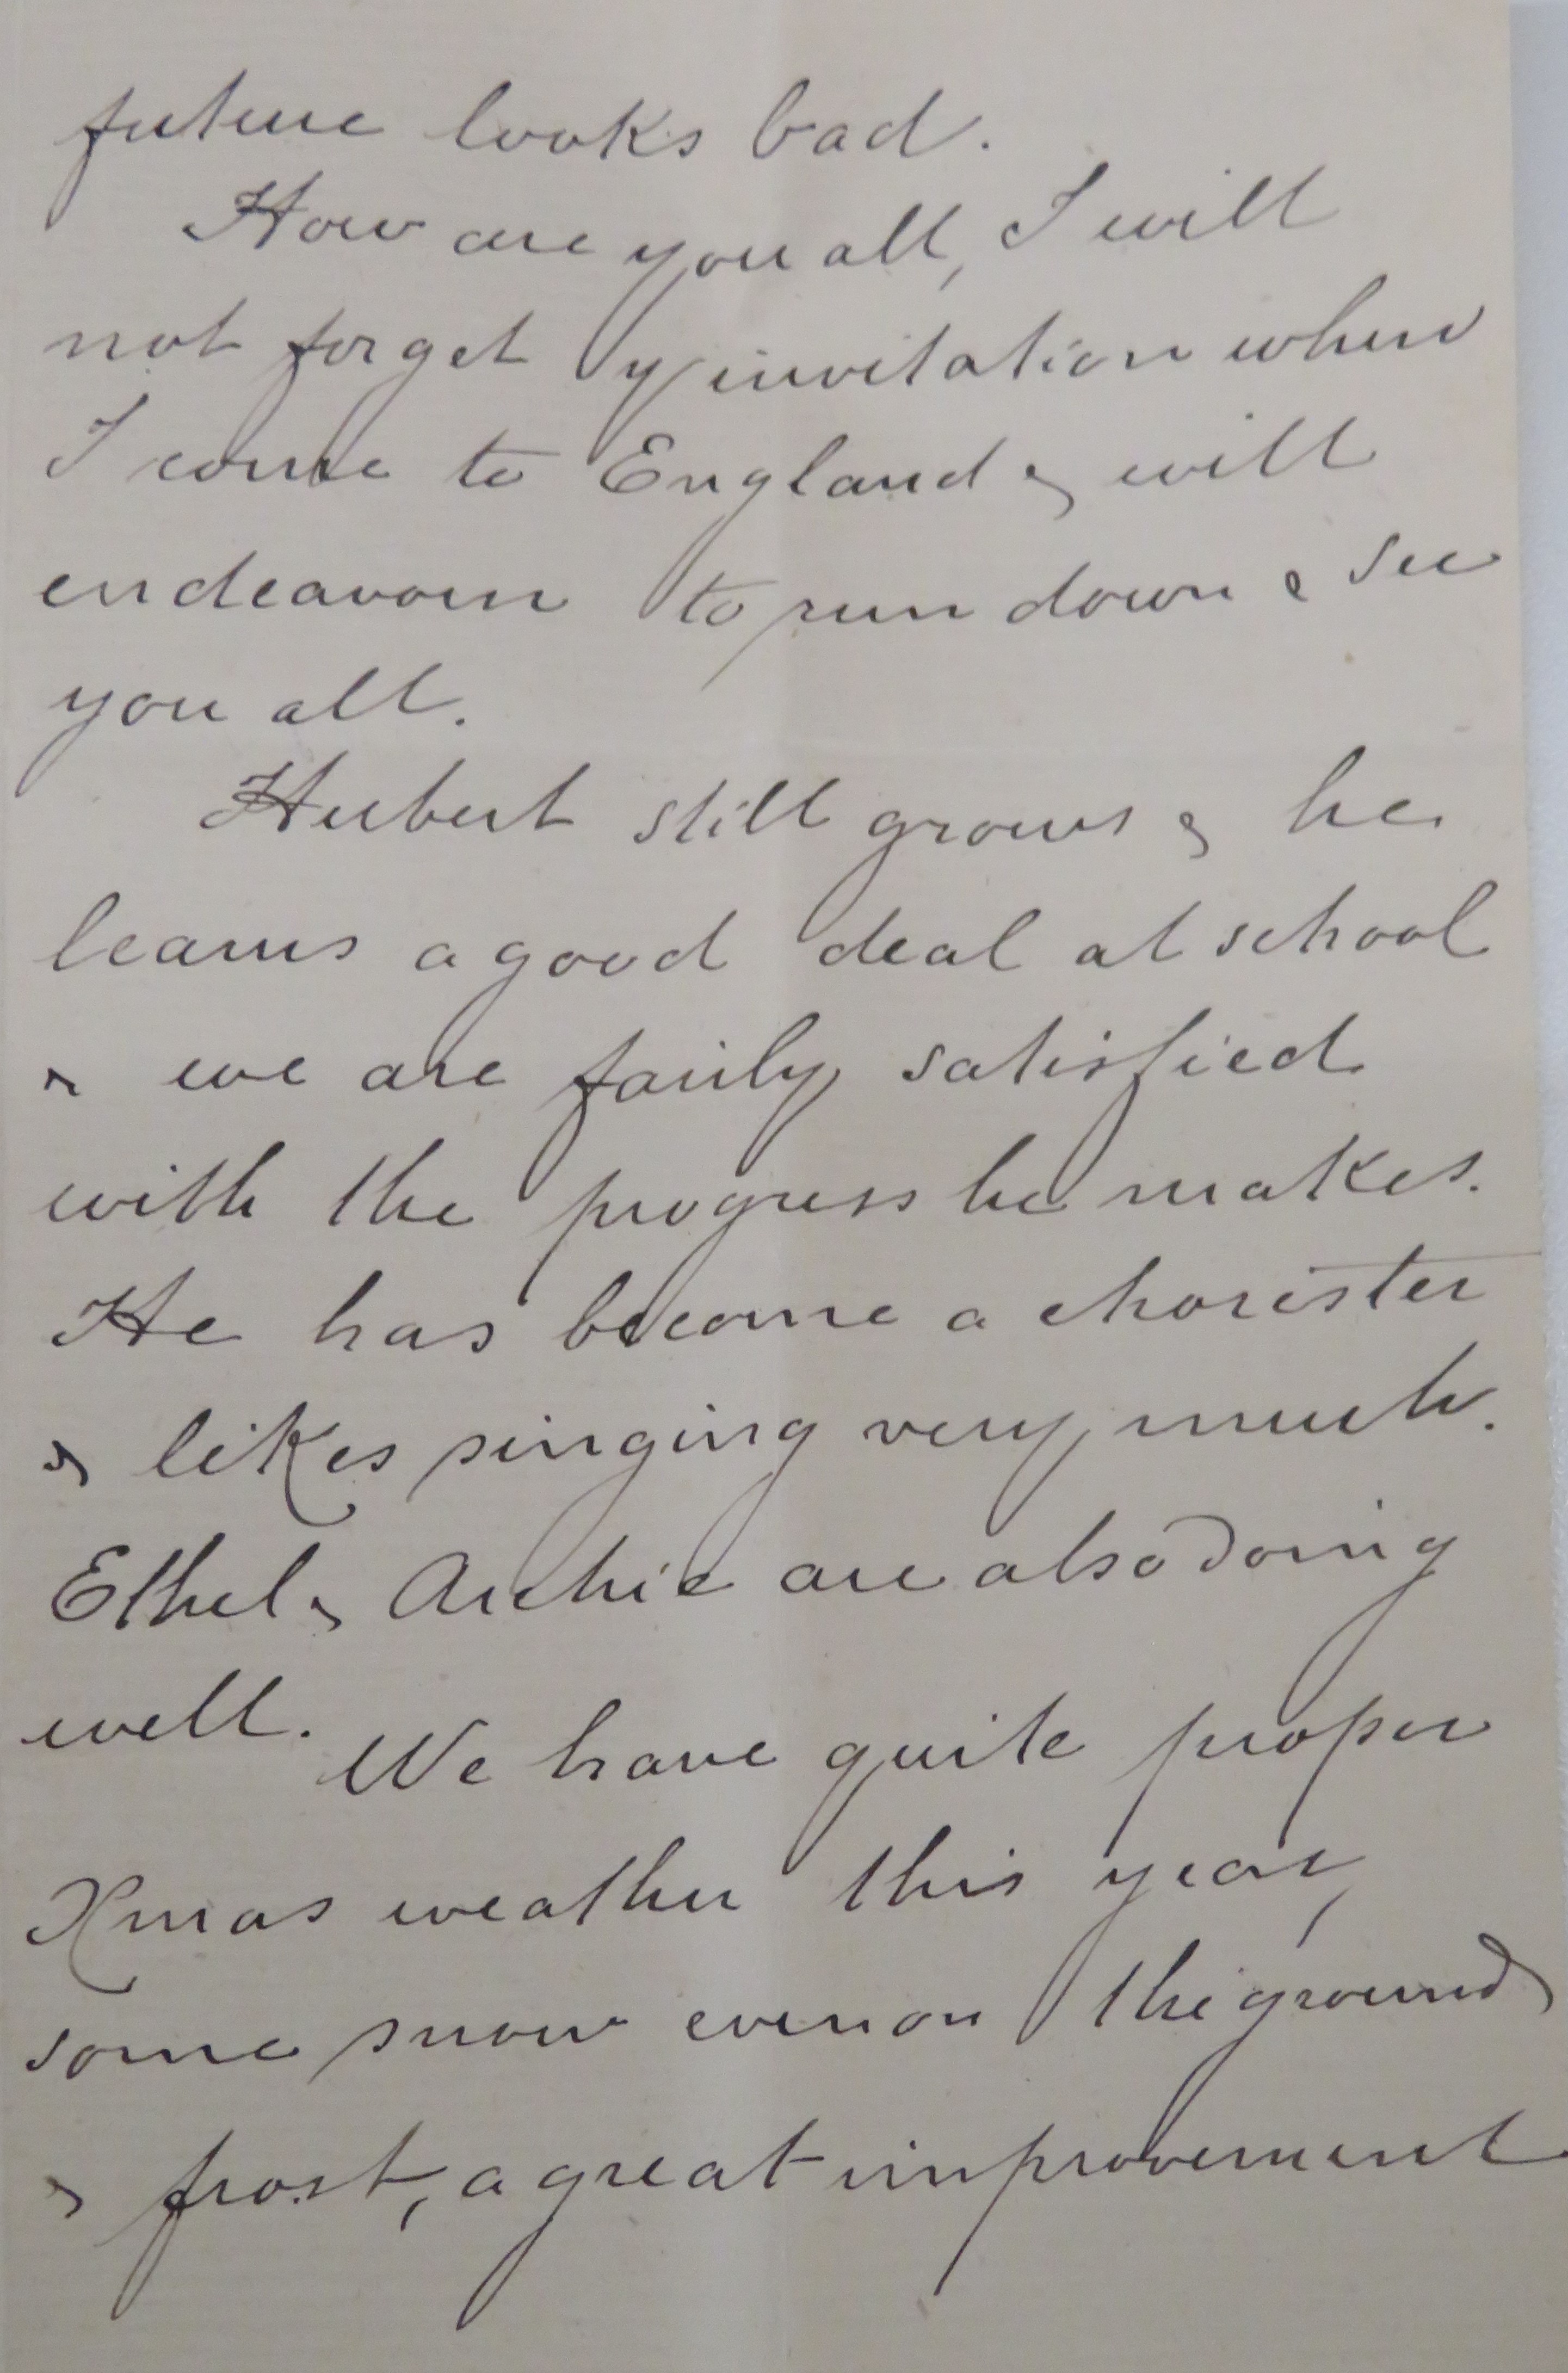 future looks bad.
How are you all, I will
not forget y/ invitation when
I come to England & will
endeavour to run down & see
you all.
Hubert still grows & he
learns a good deal at school
& we are fairly satisfied
with the progress he makes.
He has become a chorister
& likes singing very much.
Ethel & Archie are also doing
well. We have quite proper
Xmas weather this year,
some snow even on the ground
& frost, a great improvement